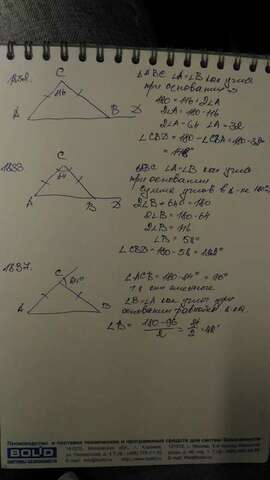 1832.
C
116
A
B
D
∆ABC ∠A=∠B как углы
при основании
180=116+2∠A
2∠A=180-116
2∠A=64 ∠A=32
∠CBD=180-∠CBA=180-32
=148°
1833.
C
64
A
B
D
ABC ∠A=∠B как углы
при основании
сумма углов в ∆-к 180°
2∠B+64=180
2∠B=180-64
2∠B=116
∠B=58°
∠CBD=180-58=122°
1837.
C
84°
A
B
∠ACB=180-84°=96°
т.к. они смежные
∠B=∠A как углы при
основании
∠B= 180-96 / 2 = 84 / 2 =42°
BOLID
СИСТЕМЫ БЕЗОПАСНОСТИ
Производство и поставка технических и программных средств для систем безопасности